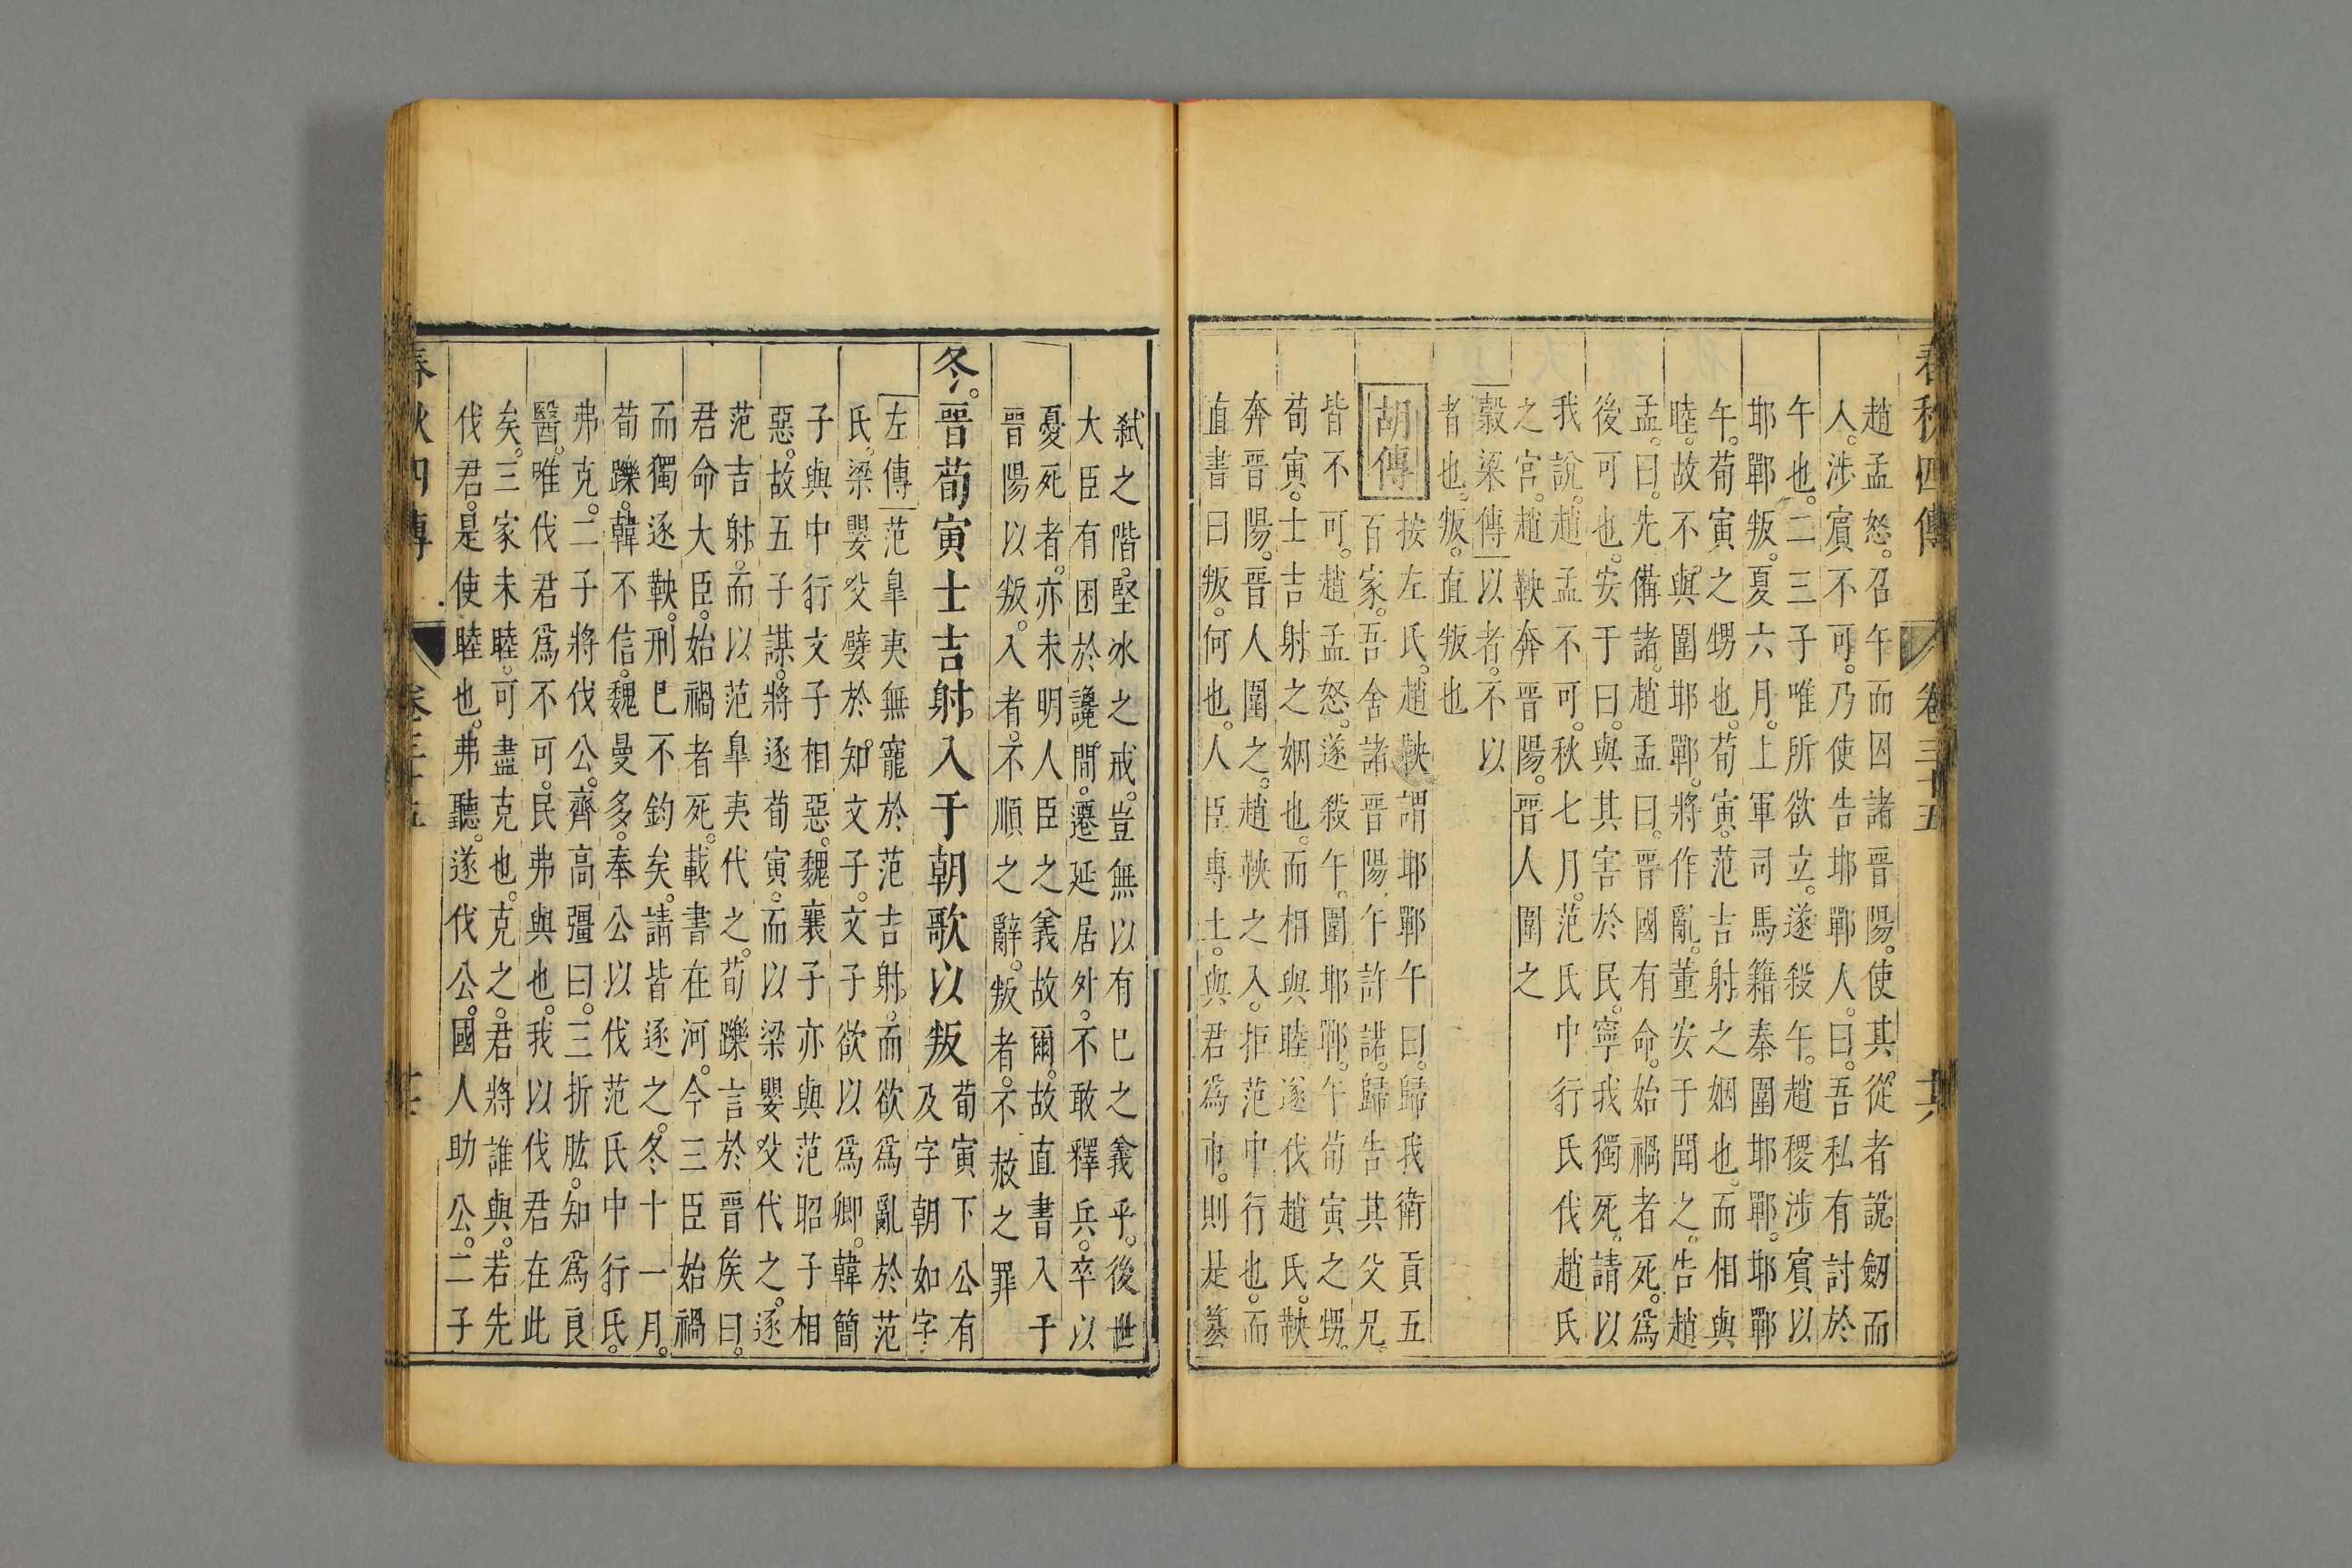 春秋四傳 卷三十五
趙孟怒。召午而囚諸晉陽。使其從者說劒而
人。涉賓不可。乃使告邯鄲人。曰。吾私有討於
午也。二三子唯所欲立。遂殺午。趙稷涉賓以
邯鄲叛。夏六月。上軍司馬籍秦圍邯鄲。邯鄲
午。荀寅之甥也。荀寅。范吉射之姻也。而相與
睦。故不與圍邯鄲。將作亂。董安于聞之。告趙
孟。曰。先備諸。趙孟曰。晉國有命。始禍者死。爲
後可也。安于曰。與其害於民。寧我獨死。請以
我說。趙孟不可。秋七月。范氏中行氏伐趙氏
之宮。趙鞅奔晉陽。晉人圍之
穀梁傳以者。不以
者也。叛。直叛也
胡傳
按左氏。趙鞅謂邯鄲午曰。歸我衛貢五
百家。吾舍諸晉陽。午許諾。歸告其父兄。
皆不可。趙孟怒。遂殺午。圍邯鄲。午荀寅之甥。
荀寅。士吉射之姻也。而相與睦。遂伐趙氏。鞅
奔晉陽。晉人圍之。趙鞅之入。拒范中行也。而
直書曰叛。何也。人臣專土。與君爲市。則是簒
弑之階。堅冰之戒。豈無以有巳之義乎。後世
大臣有困於讒間。遷延居外。不敢釋兵。卒以
憂死者。亦未明人臣之義故爾。故直書入于
晉陽以叛。入者。不順之辭。叛者。不赦之罪
冬。晉荀寅士吉射入于朝歌以叛
荀寅下公有
及字朝如字
左傳范臯夷無寵於范吉射。而欲爲亂於范
氏。梁嬰父嬖於知文子。文子欲以爲卿。韓簡
子與中行文子相惡。魏襄子亦與范昭子相
惡。故五子謀。將逐荀寅。而以梁嬰父代之。逐
范吉射。而以范臯夷代之。荀躒言於晉矦曰。
君命大臣。始禍者死。載書在河。今三臣始禍
而獨逐鞅。刑巳不鈞矣。請皆逐之。冬十一月。
荀躒。韓不信。魏曼多。奉公以伐范氏中行氏。
弗克。二子將伐公。齊高彊曰。三折肱。知爲良
醫。唯伐君爲不可。民弗與也。我以伐君在此
矣。三家未睦。可盡克也。克之。君將誰與。若先
伐君。是使睦也。弗聽。遂伐公。國人助公。二子